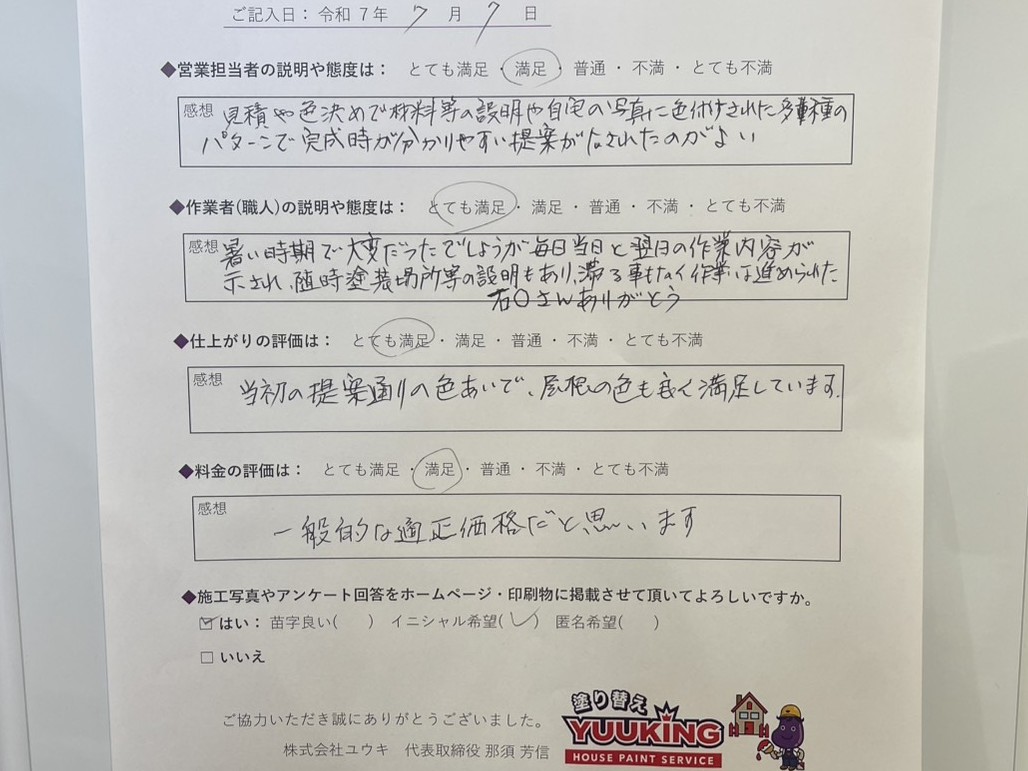 ご記入日：令和 7 年 7 月 7 日
◆営業担当者の説明や態度は： とても満足 ・ 満足 ・ 普通 ・ 不満 ・ とても不満
感想 見積や色決めで材料等の説明や自宅の写真に色付けされた多種の
パターンで完成時が分かりやすい提案がなされたのがよい
◆作業者(職人)の説明や態度は： とても満足 ・ 満足 ・ 普通 ・ 不満 ・ とても不満
感想 暑い時期で大変だったでしょうが毎日当日と翌日の作業内容が
示され、随時塗装場所等の説明もあり、滞る事もなく作業は進められた
石〇さんありがとう
◆仕上がりの評価は： とても満足 ・ 満足 ・ 普通 ・ 不満 ・ とても不満
感想 当初の提案通りの色あいで、屋根の色も良く満足しています.
◆料金の評価は： とても満足 ・ 満足 ・ 普通 ・ 不満 ・ とても不満
感想
一般的な適正価格だと思います
◆施工写真やアンケート回答をホームページ・印刷物に掲載させて頂いてよろしいですか。
☑はい： 苗字良い( ) イニシャル希望(✓) 匿名希望( )
□いいえ
ご協力いただき誠にありがとうございました。
株式会社ユウキ 代表取締役 那須 芳信
塗り替え
YUUKING
HOUSE PAINT SERVICE